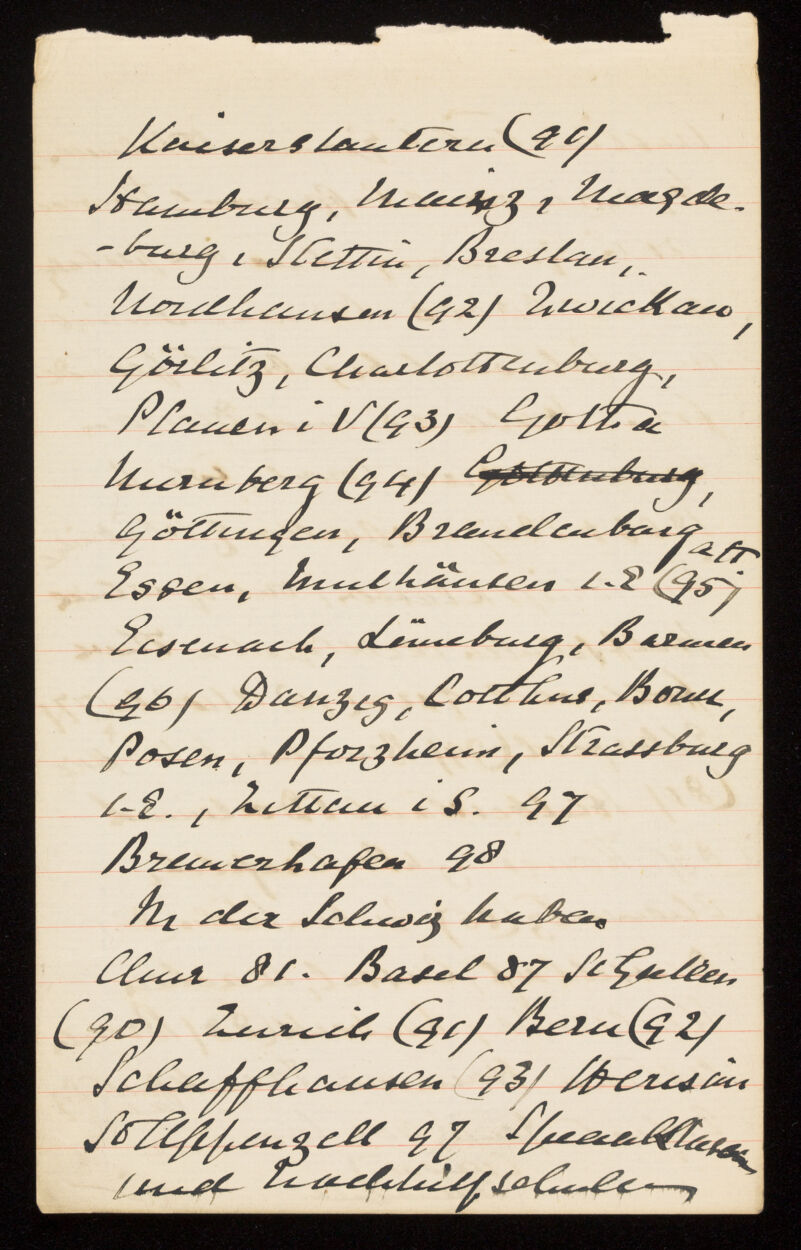 Kaiserslautern (91)
Hamburg, Mainz, Magde-
-burg, Stettin, Breslau,
Nordhausen (92) Zwickau,
Görlitz, Charlottenburg,
Plauen i V (93) Gotha
Nurnberg (94)
Göttingen, Brandenburg
Essen, Mulhäusen i.E (95)
Eisenach, Lüneburg, Barmen
(96) Danzig, Cottbus, Bonn,
Posen, Pforzheim, Strassburg
i-E., Zittau i S. 97
Bremerhafen 98
In der Schweiz haben
Chur 81. Basel 87 St Gallen
(90) Zurich (91) Bern (92)
Schaffhausen (93) Herisau
St Appenzell 97
und Nachhilfschulen